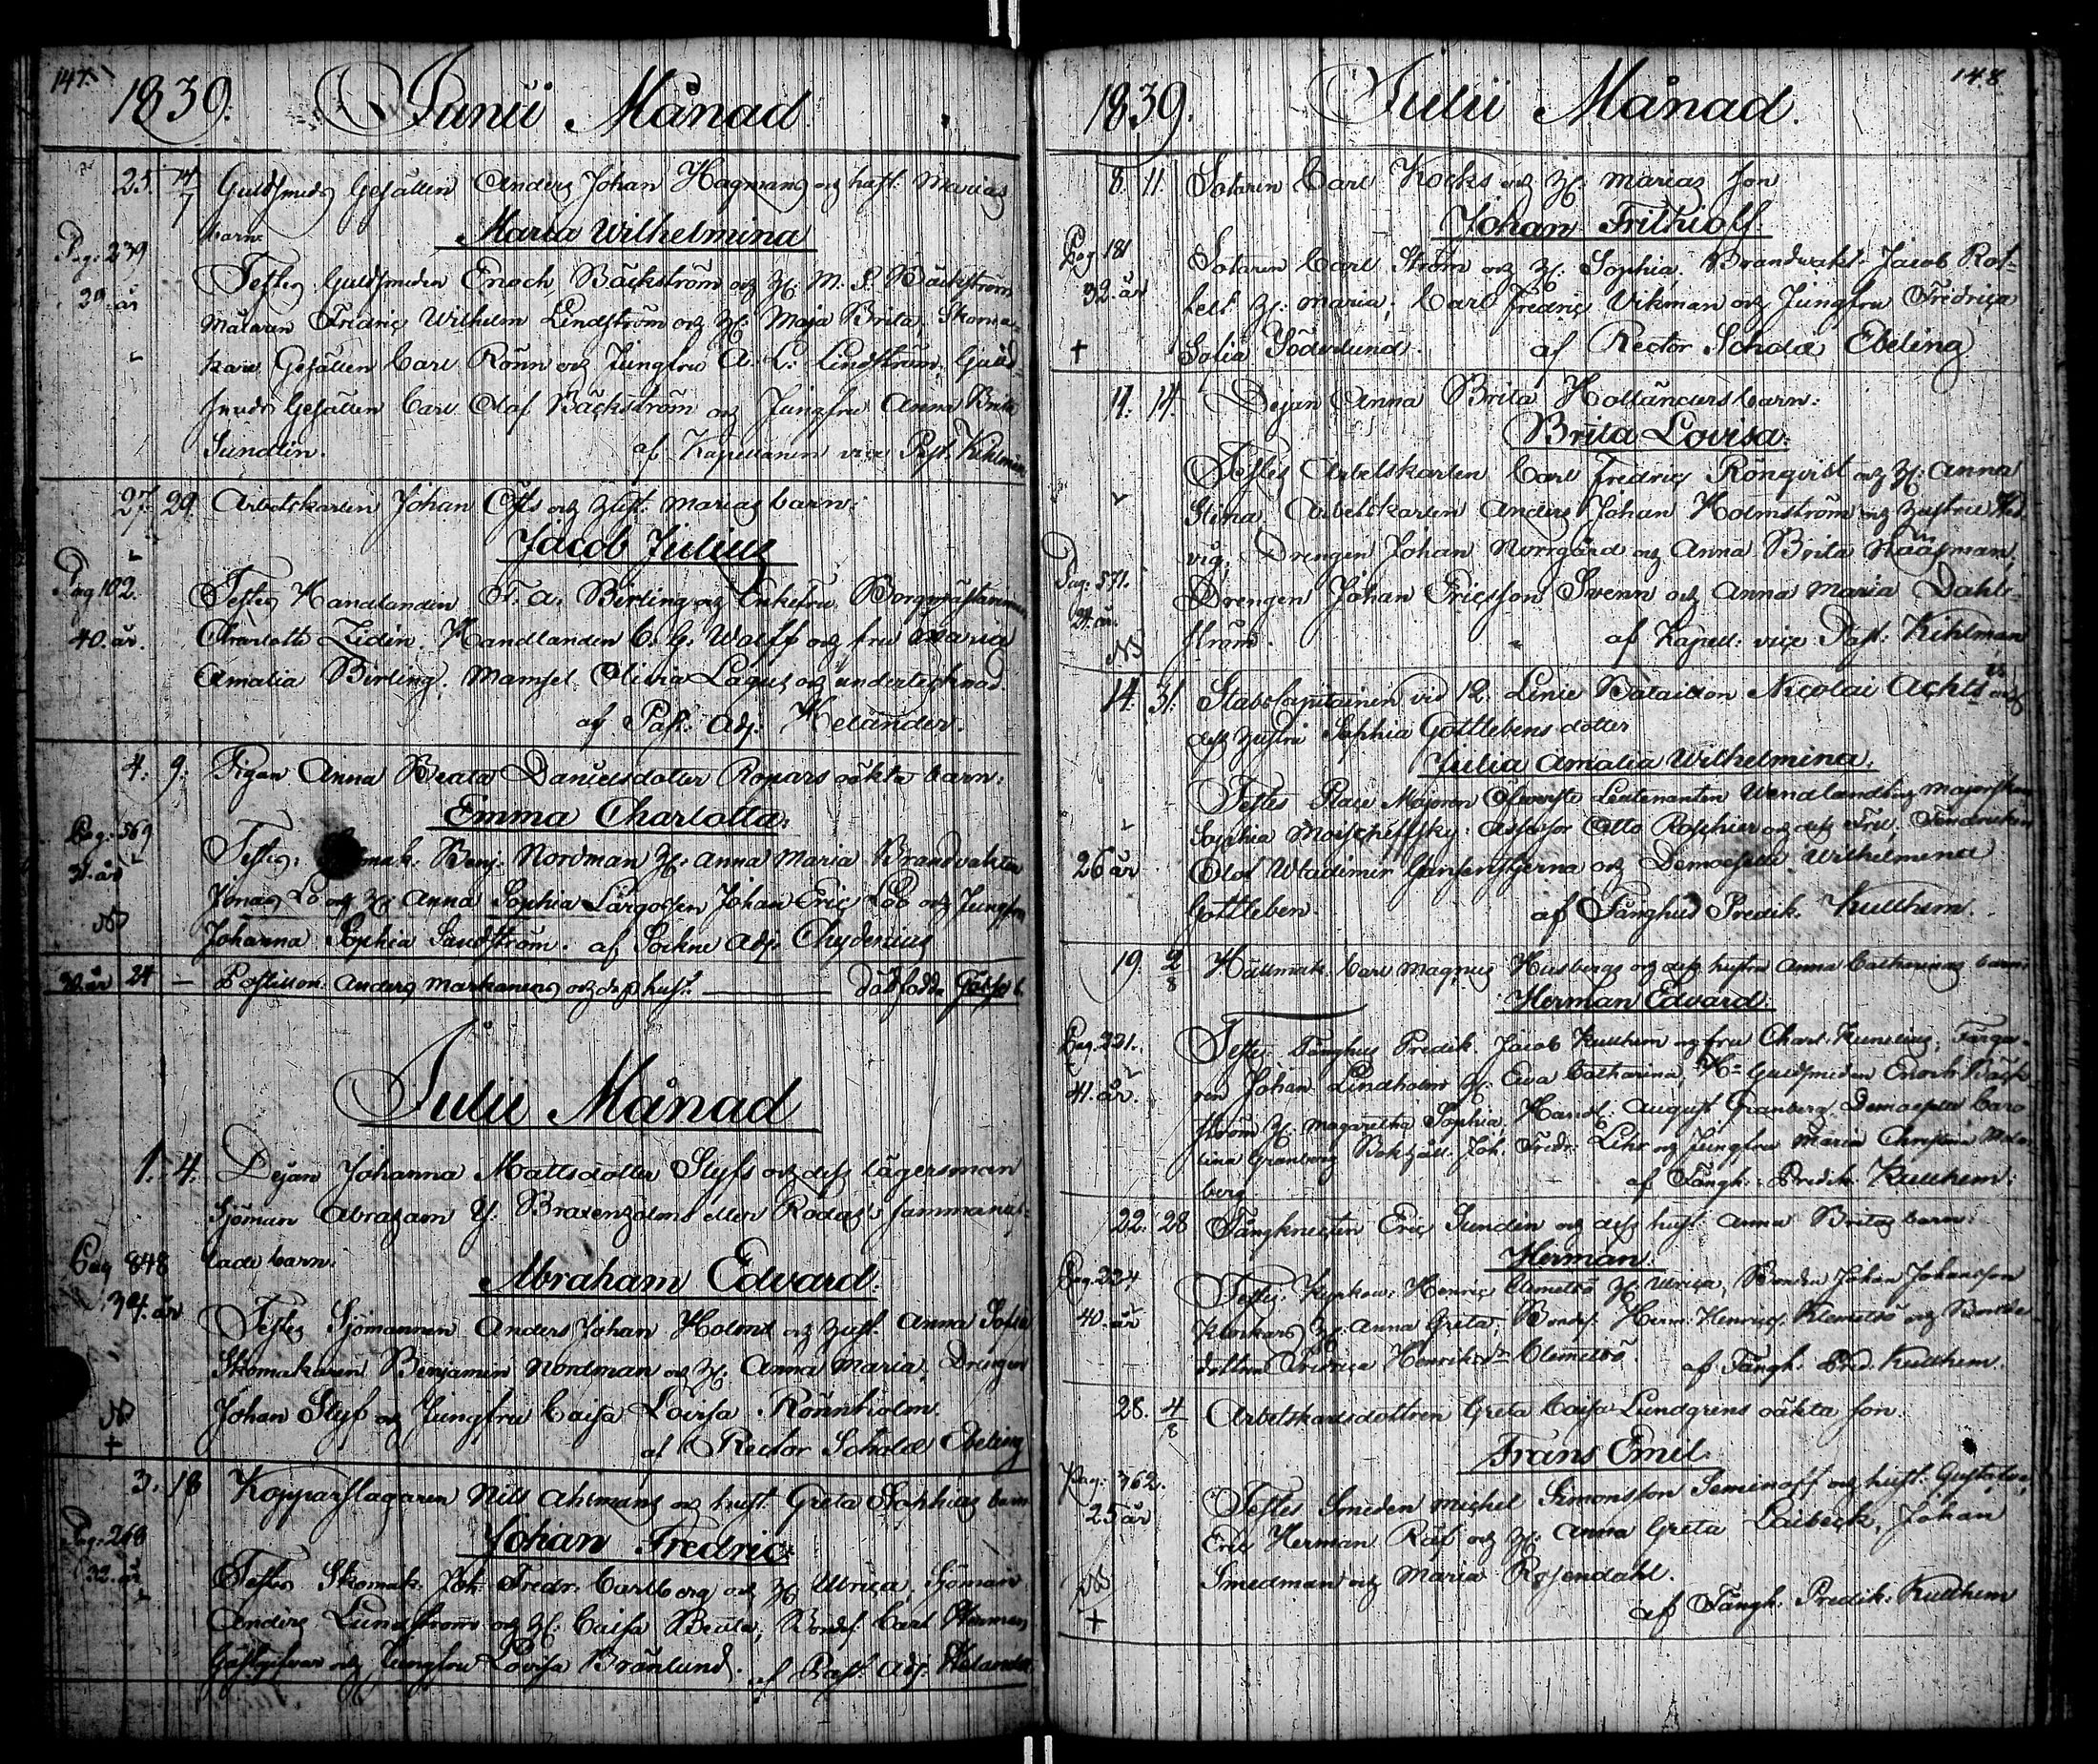 147.
1839. Junii Månad.
25. 14/7 Guldsmeds Gesällen Anders Johan Hagmans och hust. Marias
barn
Maria Wilhelmina
Pag: 239
29. år
Testes Guldsmeden Enoch Bäckström och H: M. S. Bäckström
Målaren Fredric Wilhelm Lindström och H: Maja Brita, Skoma-
kare Gesällen Carl Rönn och Jungfru A. C. Lindström, Guld-
smeds Gesällen Carl Olof Bäckström och Jungfru Anna Brita
Sundlin. af Kapellanen vice Past. Kihlman
27. 29. Arbetskarlen Johan Öfts och hust. Marias barn:
Jacob Julius
Pag 102.
40. år.
Testes Handlanden F. A. Berling och Enkefru Borgmästarinnan
Charlotte Zidén. Handlanden C. G. Wolff och fru Maria
Amalia Berling. Mamsel Olivia Lagus och undertecknad
af Past. Adj. Helander.
4. 9. Pigan Anna Beata Danielsdotter Ropars oäkta barn:
Emma Charlotta:
Pag: 569
31. år
Testes: Benj. Nordman H: Anna Maria Brandvakten
Jonas Lö och H: Anna Sophia Johan Eric Löö och Jungfru
Johanna Sophia Sandström. af Sockne Adj. Chydenius
30 år 24 — Postillion Anders Markanias och dess hust. — dödfödde
Julii Månad
1. 4. Dejan Johanna Mattsdotter Slyfs och dess lägersman
Sjöman Abraham H: Braxenholms eller Rodas sammanaf-
lade barn.
Abraham Edvard:
Pag 848
34. år
Testes Sjömannen Anders Johan Holms och hust. Anna Sofia
Skomakaren Benjamin Nordman och H: Anna Maria, Drengen
Johan Slyf och Jungfru Caisa Lovisa Rönnholm.
af Rector Scholæ Ebeling
3. 18 Kopparslagaren Nils Ahlmans och hust. Greta Sophias barn
Johan Fredric:
Pag: 268
32. år
Testes Skomak. Joh. Fredr. Carlberg och H: Ulrica, Sjöman
Anders Lundström och H: Caisa Beata, Bonds. Carl Herman
Gästgifvar och Jungfru Lovisa Brånlund. af Past. Adj. Helander
148
1839. Julii Månad.
8. 11. Sotaren Carl Kocks och H: Marias son
Johan Frithiolf.
Pag 181
32. år
Sotaren Carl Ström och H: Sophia, Brandvakt. Jacob Rot-
felt H: Maria, Carl Fredric Vikman och Jungfru Fredrica
Sofia Söderlund. af Rector Scholæ Ebeling
11. 14. Dejan Anna Brita Holländers barn:
Brita Lovisa:
Testes Arbetskarlen Carl Fredric Rönqvist och H: Anna
Stina, Arbetskarlen Anders Johan Holmström och hustru Hed-
vig, Drengen Johan Norrgård och Anna Brita Hååfman,
Pag. 571.
24. år
Drengen Johan Ericsson Svenn och Anna Maria Dahl-
ström. af Kapell: vice Past: Kihlman
14. 31. Stabs Capitainen vid 12. Linie Bataillon Nicolai Achts och
dess hustru Sophia Gottlebens dotter
Julia Amalia Wilhelmina.
Testes Place Majoren Öfverste Lieutenanten Wendland och Majorskan
Sophia Moischeffsky. Assessor Otto Roschier och dess Fru. Fendricken
26 år
Olof Wladimir Gansenstjerna och Demoiselle Wilhelmina
Gottleben. af Fånghus Predik. Kullhem.
19. 2/8 Hattmak. Carl Magnus Husbergs och dess hustru Anna Catharinas barn.
Herman Edvard.
Pag. 221.
41. år.
Testes. Fånghus Predik. Jacob Kullhem och fru Charl. Kunelius, Färga-
ren Johan Lindholm H: Eva Catharina, Hr Guldsmeden Enoch Bäck-
ström H: Magaretha Sophia, Handl: August Granberg Demoiselle Caro-
lina Granberg Bokhåll. Joh. Fredr. Lihr och Jungfru Maria Christina Malm-
berg. af Fångh. Predik. Kullhem.
22. 28 Fångknecten Eric Sundén och dess hust. Anna Britas barn.
Herman.
Pag. 224
40. år
Testes. Henric Clemetsö H: Ulrica, Bonden Johan Johansson
Klockars H: Anna Greta, Bonds. Herm. Henrics. Klemetsö och Bonde
dottern Fredrica Henriksdr Clemetsö. af Fångh. Pred. Kullhem.
28. 4/8 Arbetskarlsdottren Greta Caisa Lundgrens oäkta son.
Frans Emil.
Pag: 362.
25 år
Testes Smeden Michel Simonsson Seminoff och hust. Gustava,
Eric Herman Räf och H: Anna Greta Laibeck, Johan
Smedman och Maria Rosendahl.
af Fångh. Predik. Kullhem